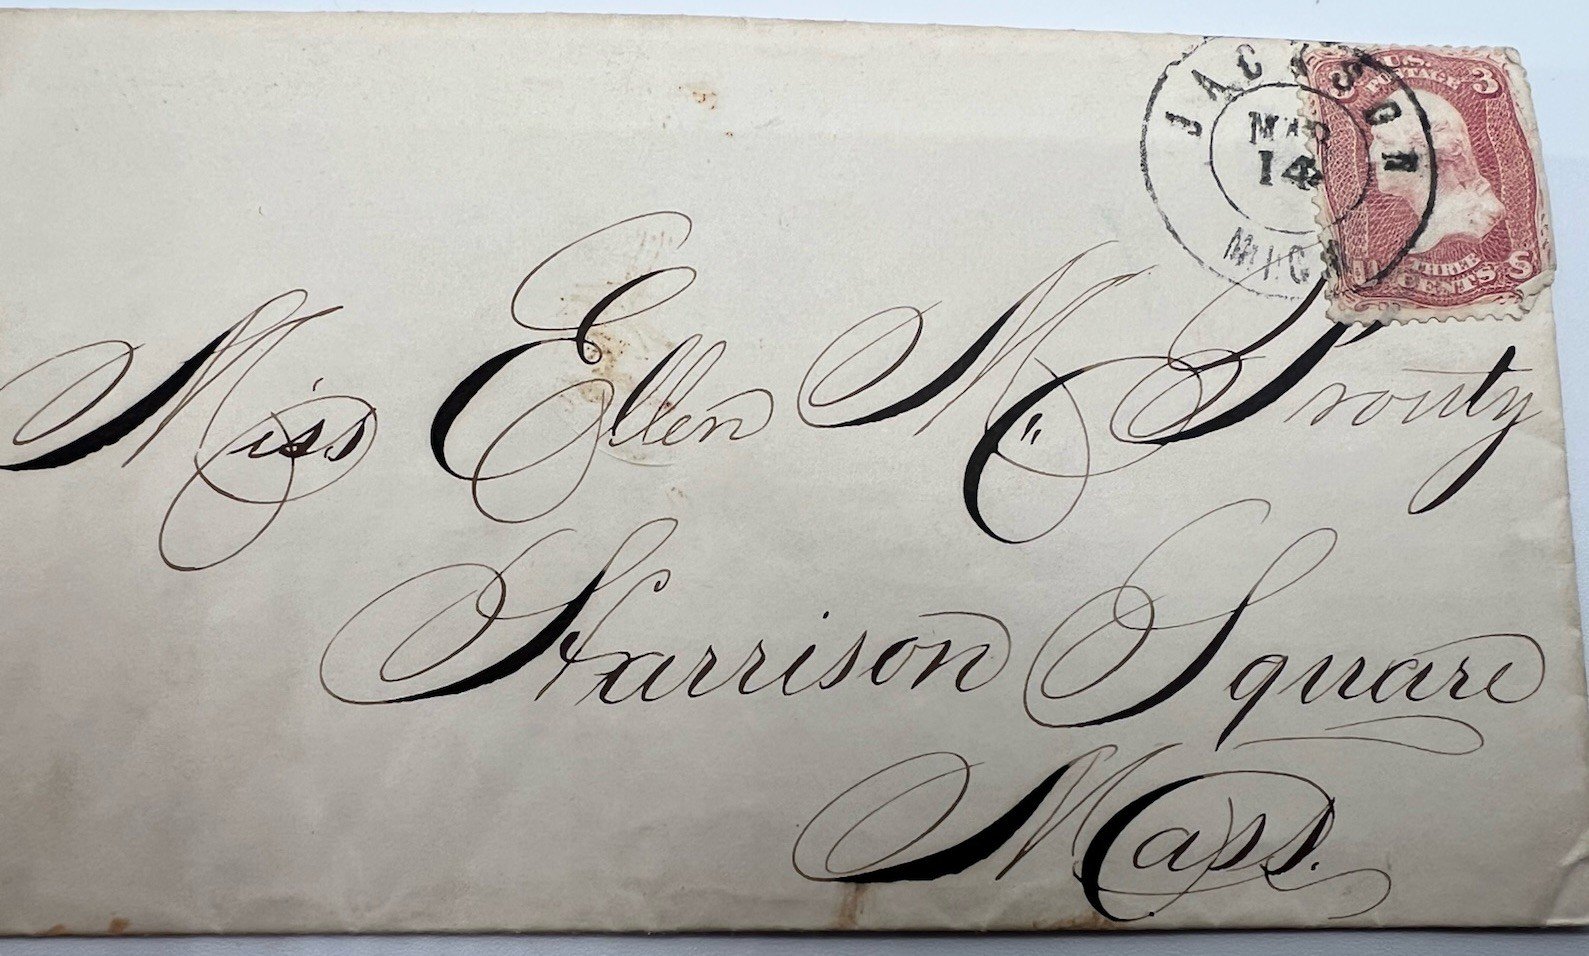 JACKSON
MAR
14
MICH
U.S.
POSTAGE
3
THREE
CENTS
Miss Ellen M. Prouty
Harrison Square
Mass.